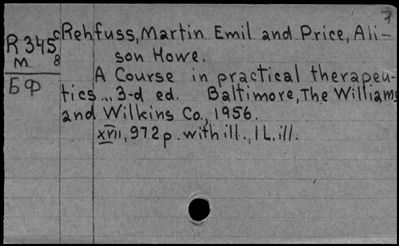 7
R 345 c Rehfuss, Martin Emil and Price, Ali-
м 8 son Howe.
БФ A Course in practical therapeu-
tics... 3-d ed. Baltimore, The Williams
and Wilkins Co., 1956.
xvii, 972 p. with ill., 1 L. ill.